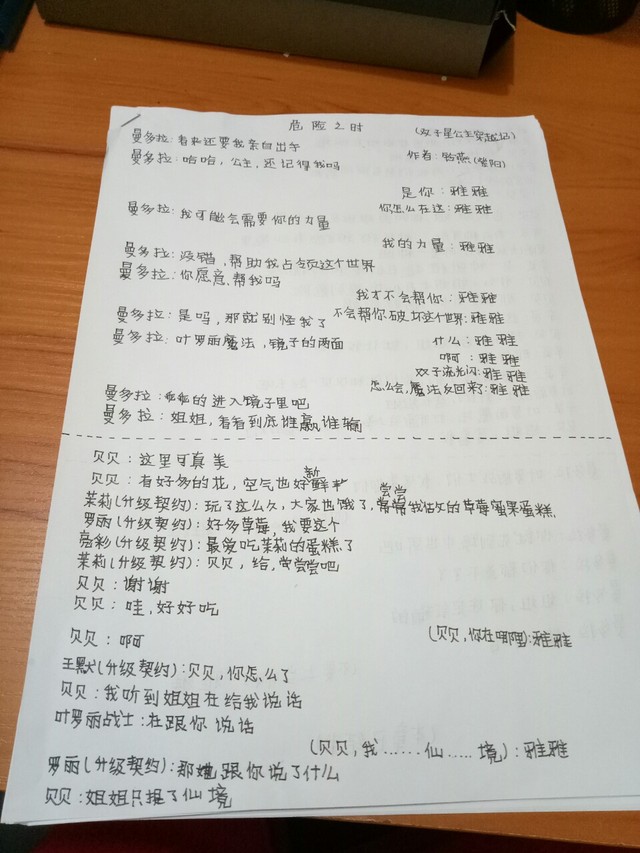 危险之时
(双子星公主穿越记)
曼多拉:看来还要我亲自出手
作者: (紫阳)
曼多拉:哈哈,公主,还记得我吗
是你:雅雅
你怎么在这:雅雅
曼多拉:我可能会需要你的力量
我的力量:雅雅
曼多拉:没错,帮助我占领这个世界
曼多拉:你愿意帮我吗
我才不会帮你:雅雅
不会帮你破坏这个世界:雅雅
曼多拉:是吗,那就别怪我了
什么:雅雅
曼多拉:叶罗丽魔法,镜子的两面
啊:雅雅
双子流光闪:雅雅
怎么会,魔法反回来了:雅雅
曼多拉:乖乖的进入镜子里吧
曼多拉:姐姐,看看到底谁赢谁输
贝贝:这里可真美
贝贝:有好多的花,空气也好新鲜
茉莉(分级契约):玩了这么久,大家也饿了,尝尝我做的草莓蜜果蛋糕
罗丽(分级契约):好多草莓,我要这个
亮彩(分级契约):最爱吃茉莉的蛋糕了
茉莉(分级契约):贝贝,给,尝尝吧
贝贝:谢谢
贝贝:哇,好好吃
(贝贝,你在哪里):雅雅
贝贝:啊
王默(分级契约):贝贝,你怎么了
贝贝:我听到姐姐在给我说话
叶罗丽战士:在跟你说话
(贝贝,我……仙……境):雅雅
罗丽(分级契约):那她跟你说了什么
贝贝:姐姐只提了仙境